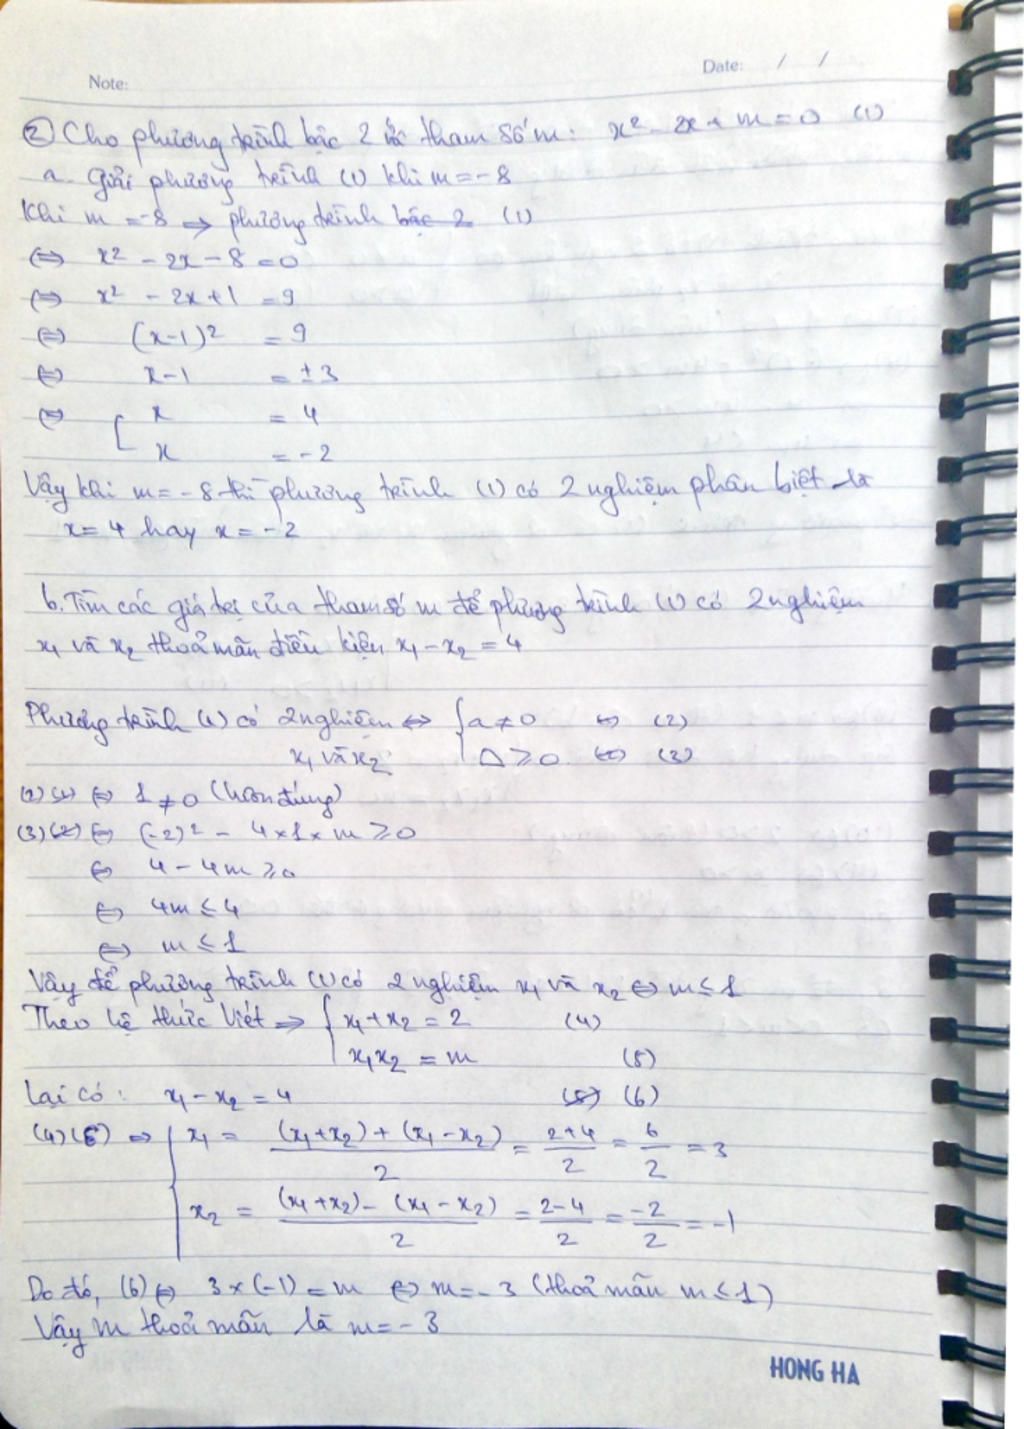 Note:
Date: / /
② Cho phương trình bậc 2 ẩn tham số m: x² - 2x + m = 0 (1)
a. Giải phương trình (1) khi m = -8
Khi m = -8 ⇒ phương trình bậc 2 (1)
⇔ x² - 2x - 8 = 0
⇔ x² - 2x + 1 = 9
⇔ (x-1)² = 9
⇔ x-1 = ±3
⇔ [ x = 4
x = -2
Vậy khi m = -8 thì phương trình (1) có 2 nghiệm phân biệt là
x = 4 hay x = -2
b. Tìm các giá trị của tham số m để phương trình (1) có 2 nghiệm
x₁ và x₂ thoả mãn điều kiện x₁ - x₂ = 4
Phương trình (1) có 2 nghiệm ⇔ { a ≠ 0 ⇔ (2)
x₁ và x₂ Δ ≥ 0 ⇔ (3)
(2) ⇔ 1 ≠ 0 (luôn đúng)
(3) ⇔ (-2)² - 4×1×m ≥ 0
⇔ 4 - 4m ≥ 0
⇔ 4m ≤ 4
⇔ m ≤ 1
Vậy để phương trình (1) có 2 nghiệm x₁ và x₂ ⇔ m ≤ 1
Theo hệ thức Viét ⇒ { x₁ + x₂ = 2 (4)
x₁x₂ = m (5)
Lại có: x₁ - x₂ = 4 (6)
(4)(6) ⇒ { x₁ = (x₁+x₂) + (x₁-x₂) / 2 = 2+4 / 2 = 6 / 2 = 3
x₂ = (x₁+x₂) - (x₁-x₂) / 2 = 2-4 / 2 = -2 / 2 = -1
Do đó, (6) ⇔ 3×(-1) = m ⇔ m = -3 (thoả mãn m ≤ 1)
Vậy m thoả mãn là m = -3
HONG HA